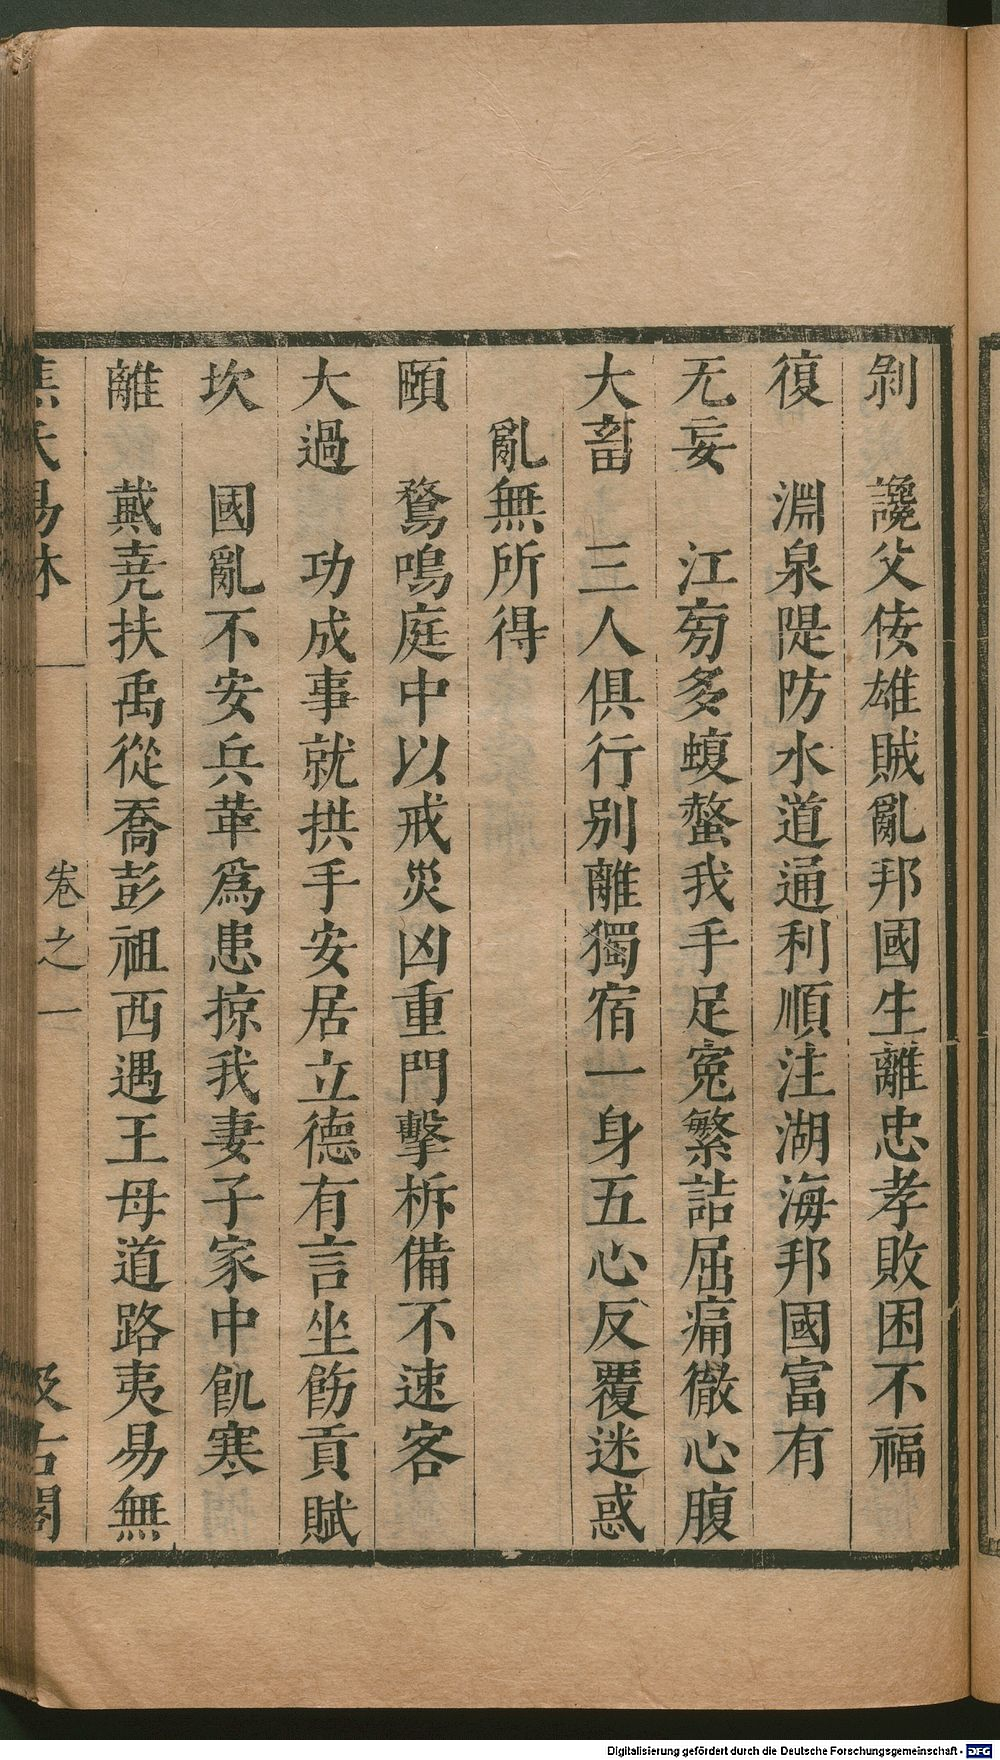 剝　讒父佞雄賊亂邦國生離忠孝敗困不福
復　淵泉隄防水道通利順注湖海邦國富有
无妄　江河多蝮螫我手足寃繁詰屈痛徹心腹
大畜　三人俱行別離獨宿一身五心反覆迷惑
亂無所得
頤　鶩鳴庭中以戒災凶重門擊柝備不速客
大過　功成事就拱手安居立德有言坐飭貢賦
坎　國亂不安兵革爲患掠我妻子家中飢寒
離　戴堯扶禹從喬彭祖西遇王母道路夷易無
焦氏易林　卷之一　汲古閣
Digitalisierung gefördert durch die Deutsche Forschungsgemeinschaft - DFG